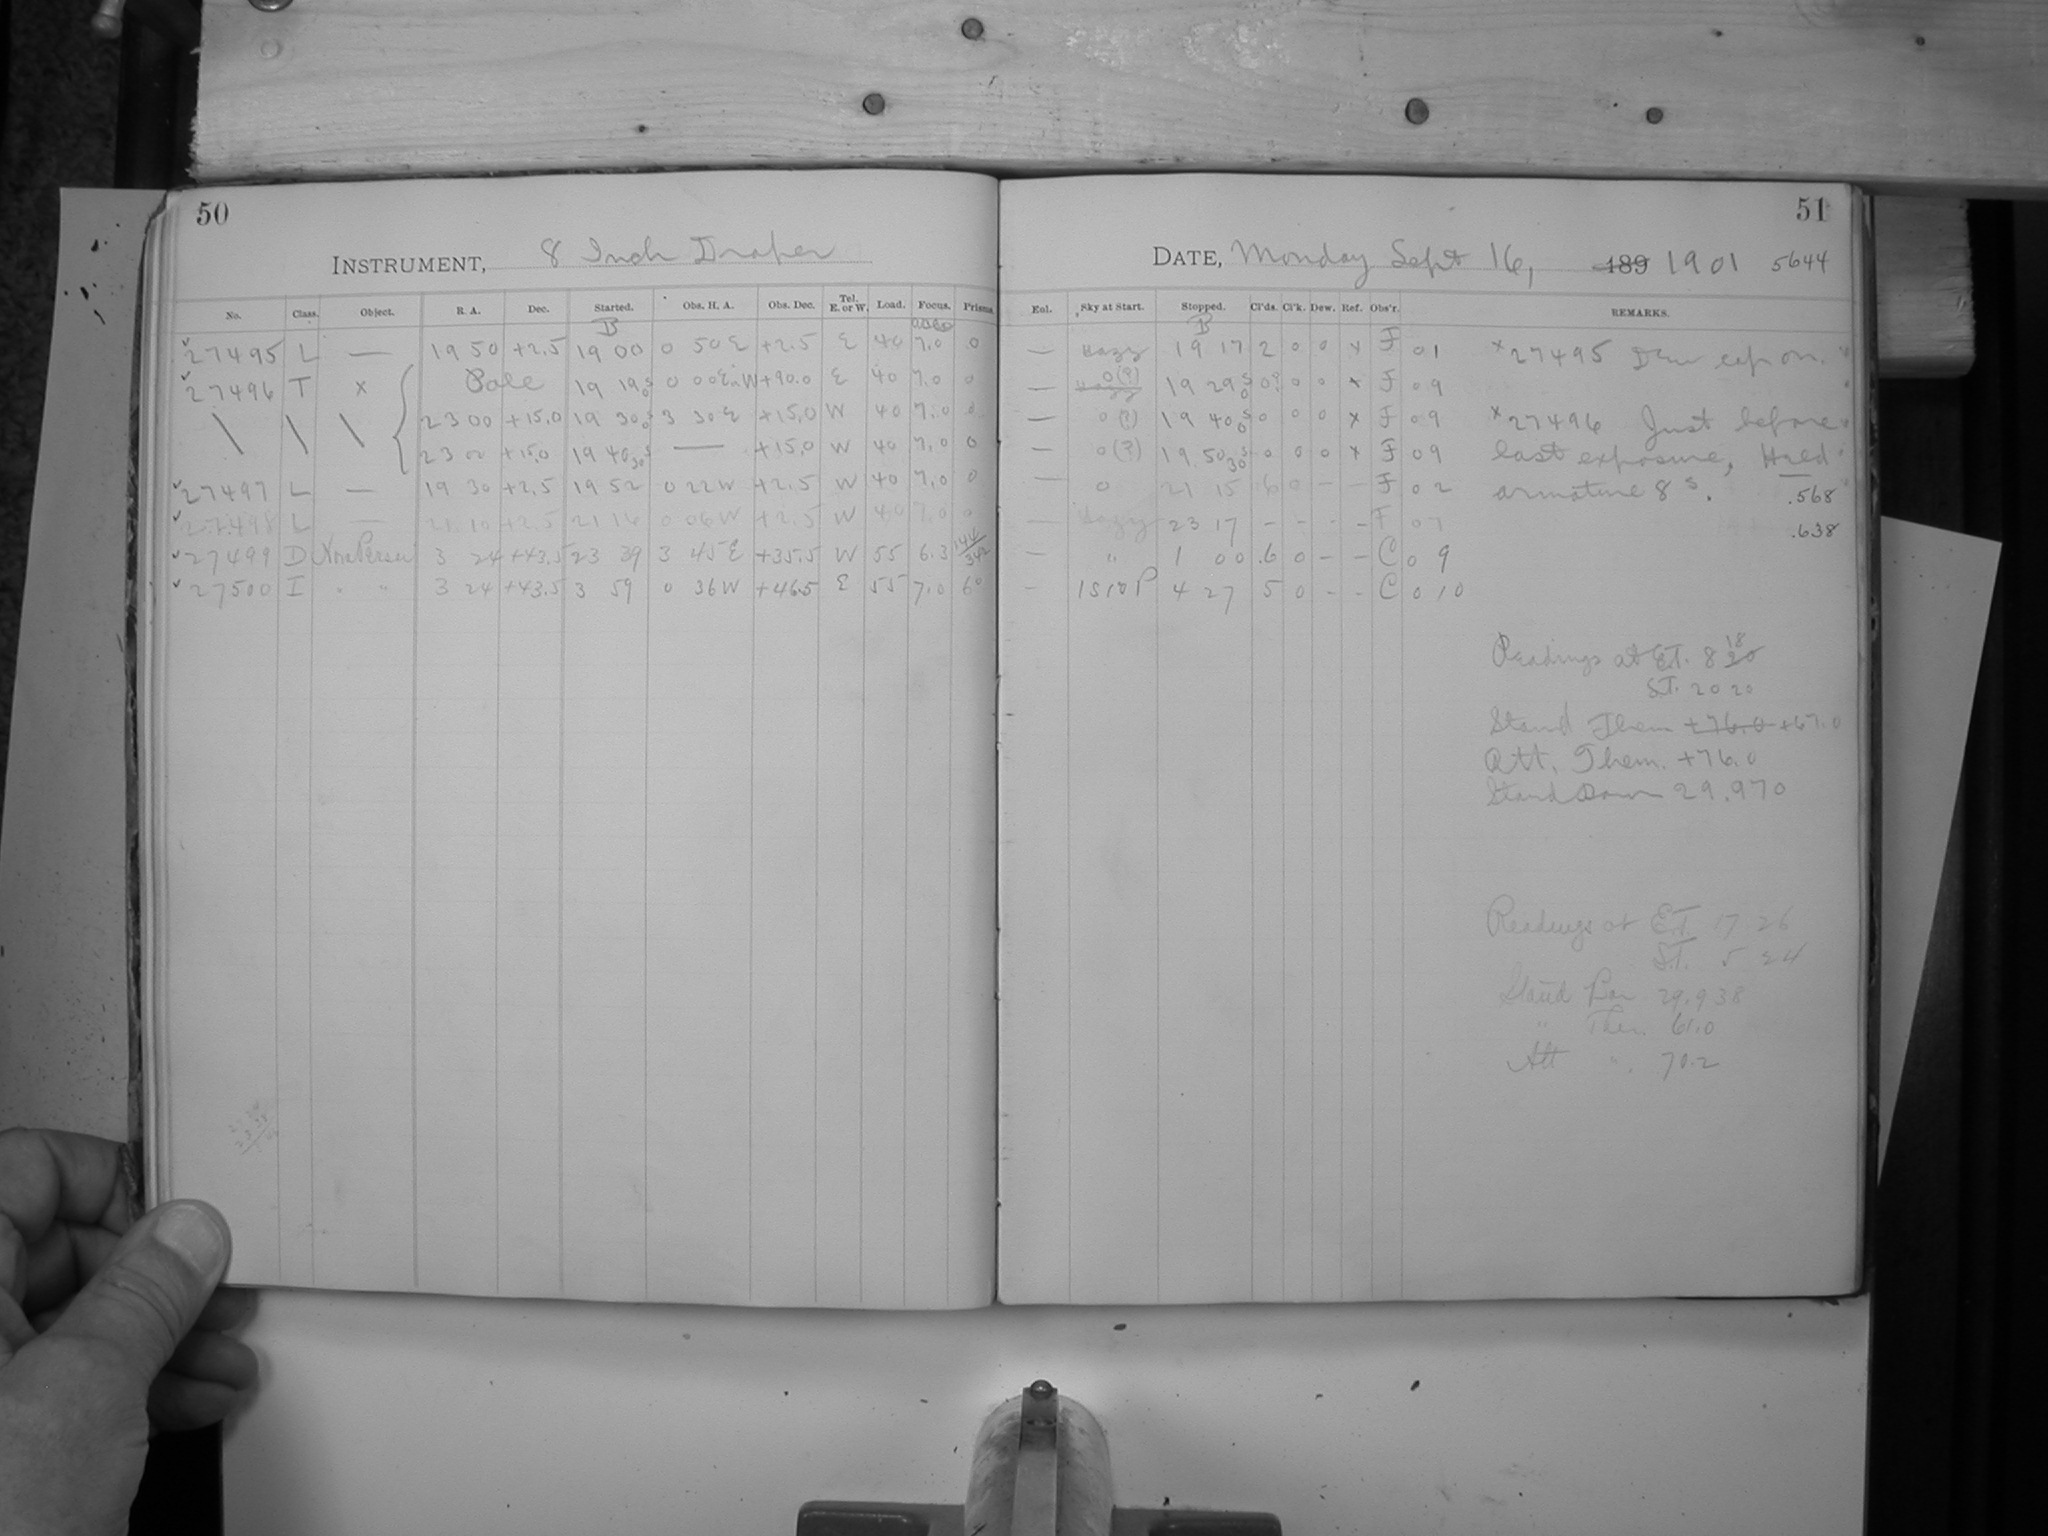 50
INSTRUMENT, 8 Inch Draper
No. Class. Object. R. A. Dec. Started. Obs. H. A. Obs. Dec. Tel. E. or W. Load. Focus. Prisms.
B
27495 L — 19 50 +2.5 19 00 0 50 E +2.5 E 40 7.0 0
27496 T x Pole 19 19 0 00 E W +90.0 E 40 7.0 0
\ \ \ 23 00 +15.0 19 30 3 30 E +15.0 W 40 7.0 0
23 00 +15.0 19 40 30 — +15.0 W 40 7.0 0
27497 L — 19 30 +2.5 19 52 0 22 W +2.5 W 40 7.0 0
27498 L — 21 10 +2.5 21 16 0 06 W +2.5 W 40 7.0 0
27499 D Nova Persei 3 24 +43.5 23 39 3 45 E +35.5 W 55 6.3
27500 I " " 3 24 +43.5 3 59 0 36 W +46.5 E 55 7.0 6°
51
DATE, Monday Sept 16, 189 1901 5644
Eol. Sky at Start. Stopped. Cl'ds. Cl'k. Dew. Ref. Obs'r. REMARKS.
B
— Hazy 19 17 2 0 0 x F 01 x27495 on.
— 0(?) 19 29 0 0 0 x F 09
— 0(?) 19 40 0 0 0 x F 09 x27496 Just before
— 0(?) 19 50 30 0 0 0 x F 09 last exposure, Held
— 0 21 15 .6 0 – – F 02 armature 8s. .568
— Hazy 23 17 – – – – F 07 .638
— " 1 00 .6 0 – – C 0 9
– 1S10P 4 27 5 0 – – C 0 10
Readings at E.T. 8 20 18
S.T. 20 20
Stand Them +76.0 +67.0
Att. Them. +76.0
Stand 29.970
Readings at E.T. 17 26
S.T. 5 24
Stand Bar 29.938
" Ther. 61.0
Att " 70.2